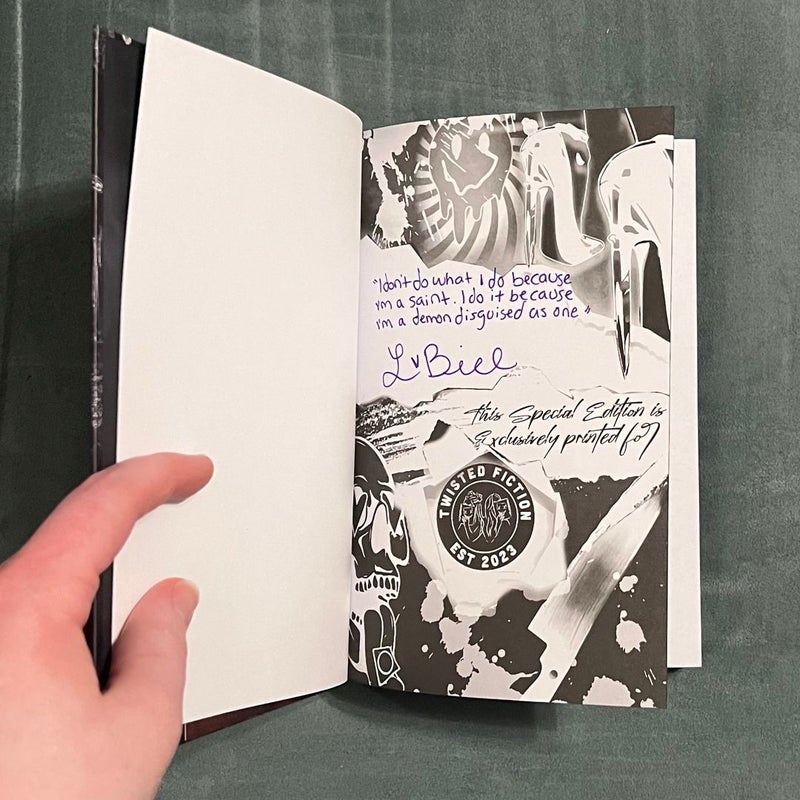 "I don't do what I do because
i'm a saint. I do it because
i'm a demon disguised as one"
L v Biel
This Special Edition is
Exclusively printed for
TWISTED FICTION
EST 2023